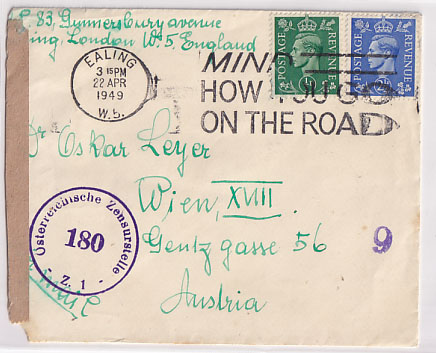 83, Gunnersbury avenue
ing, London W. 5, England
EALING
3 15 PM
22 APR
1949
W.5.
MIND
HOW YOU GO
ON THE ROAD
POSTAGE REVENUE
POSTAGE REVENUE
Dr Oskar Leyer
Wien, XVIII.
Gentzgasse 56
Austria
Österreichische Zensurstelle
180
Z. 1
9